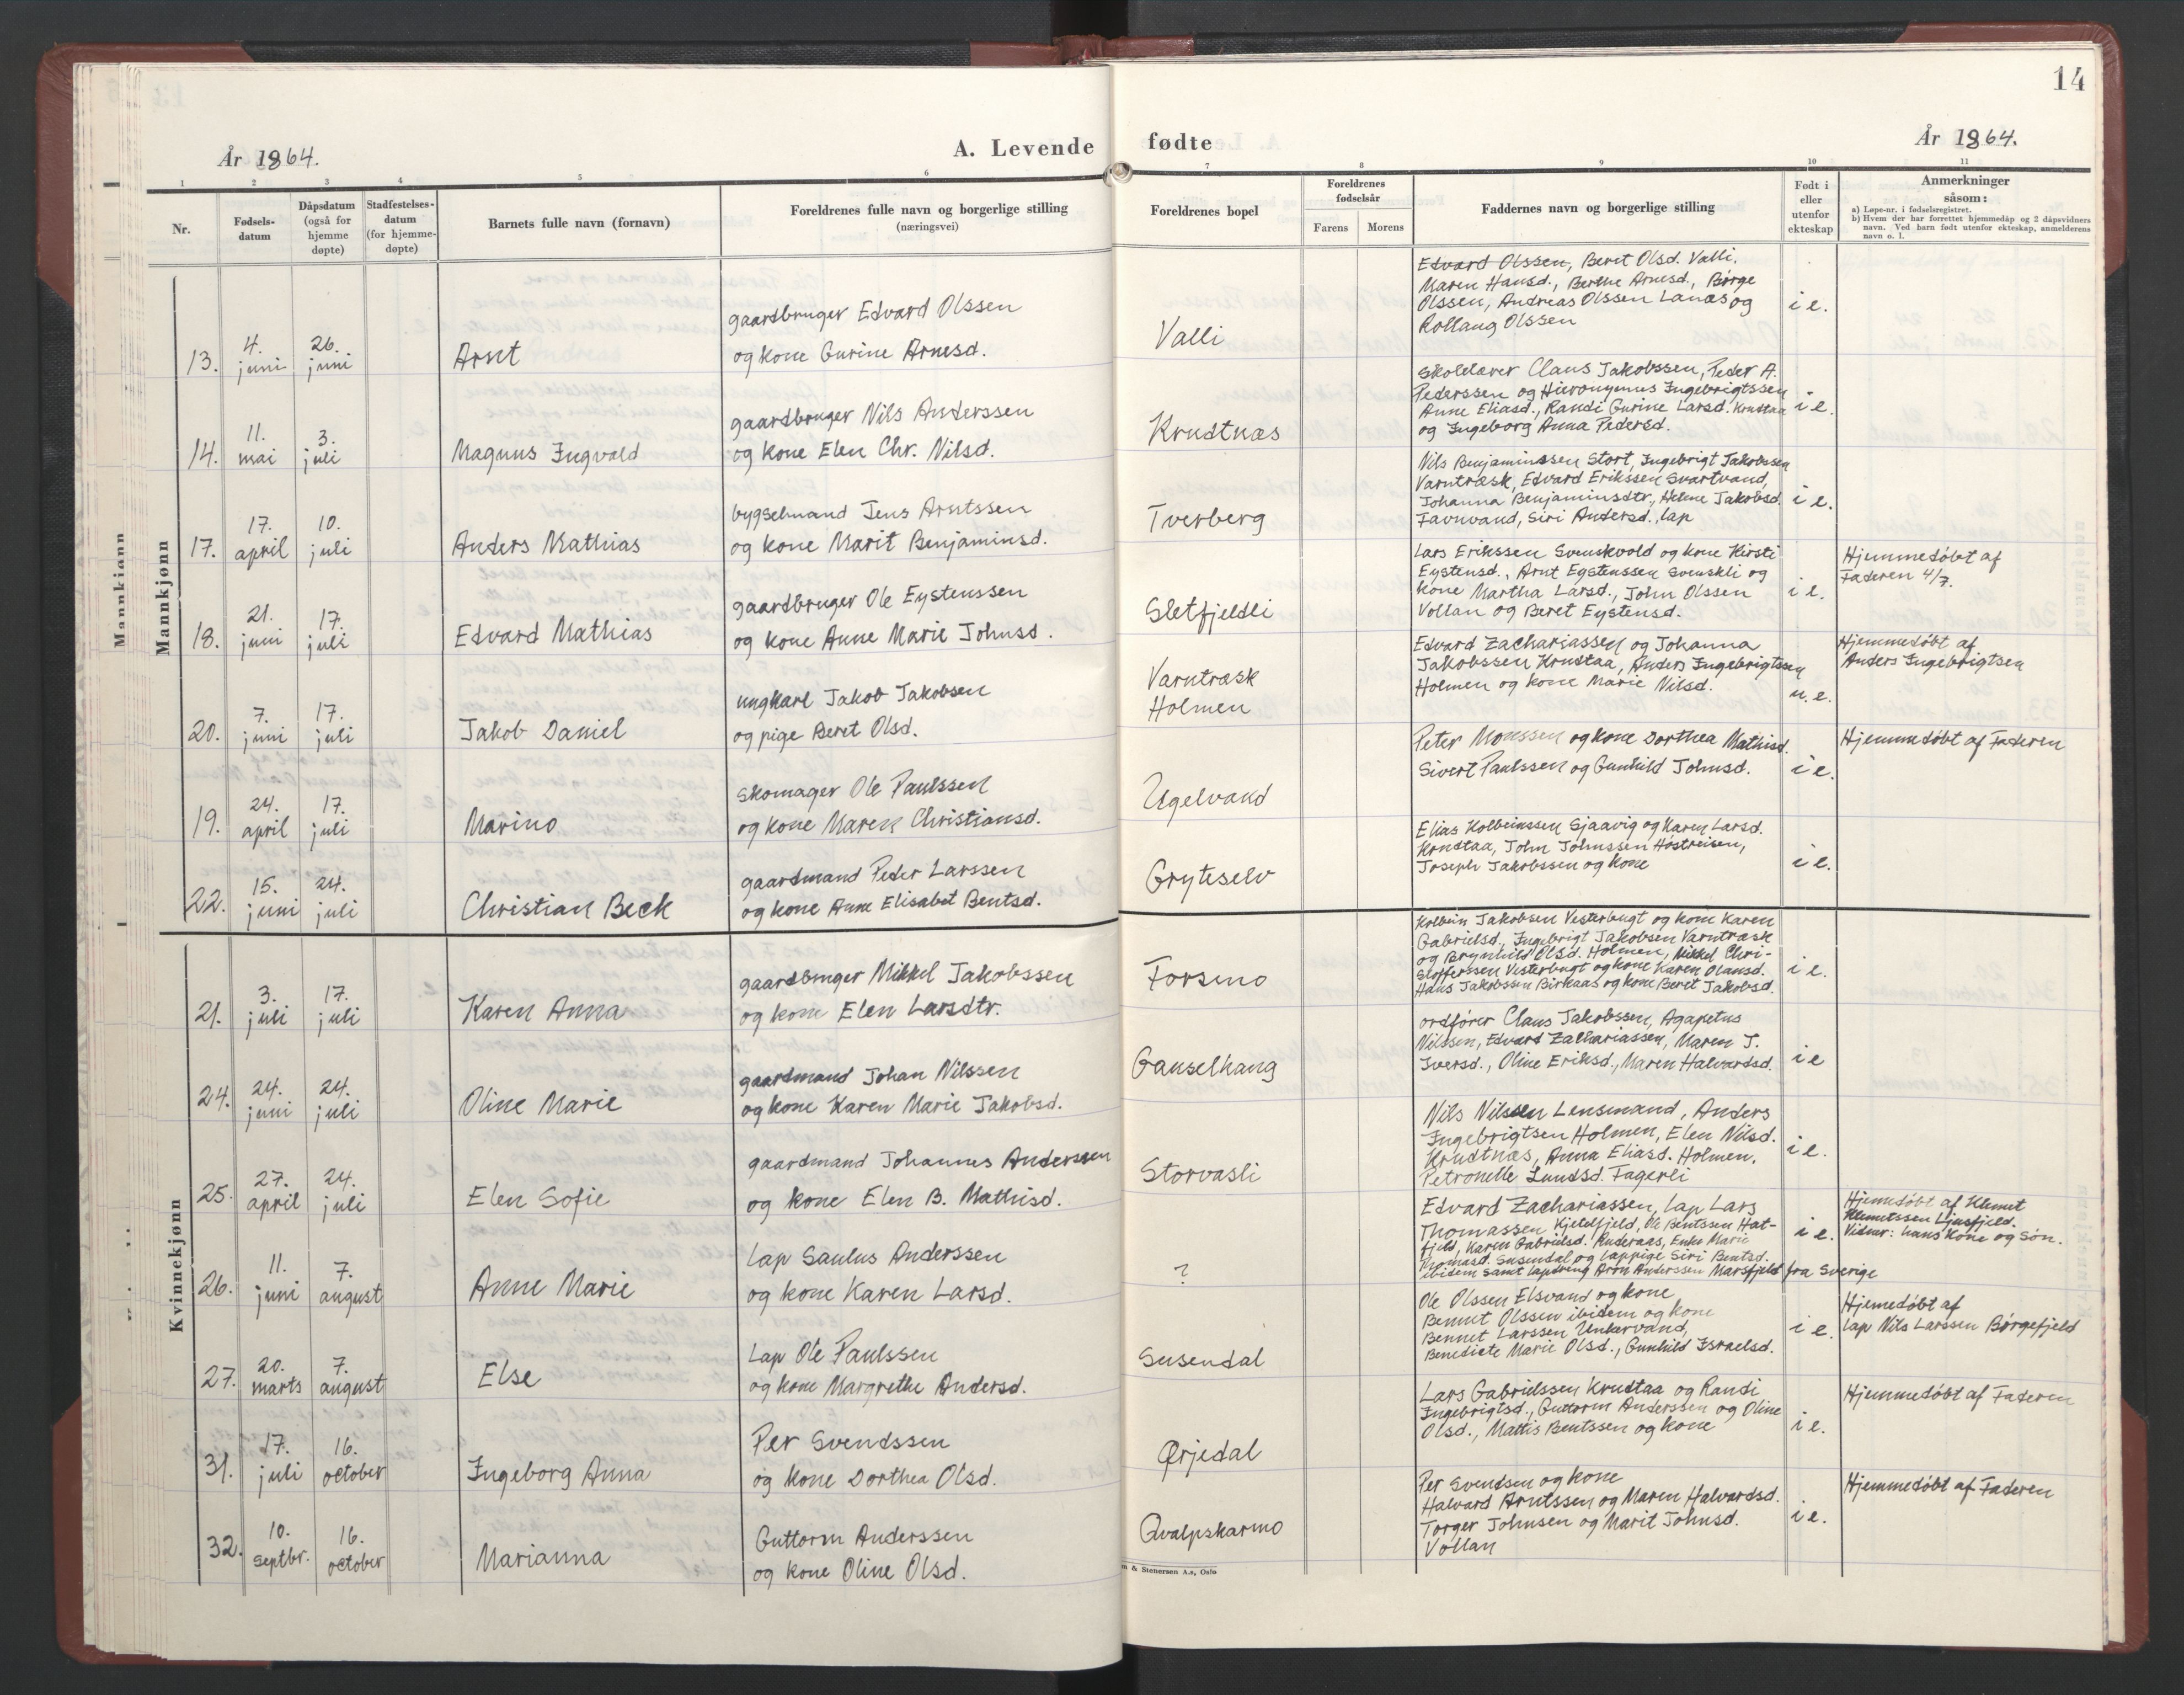 År 1864.
A. Levende
1 2 3 4 5 6
Nr.
Fødsels-
datum
Dåpsdatum
(også for
hjemme
døpte)
Stadfestelses-
datum
(for hjemme-
døpte)
Barnets fulle navn (fornavn)
Foreldrenes fulle navn og borgerlige stilling
(næringsvei)
Mannkjønn
Mannkjønn
13. 4. juni 26. juni Arnt
gaardbruger Edvard Olssen
og kone Gurine Arnesd.
14. 11. mai 3. juli Magnus Ingvald
gaardbruger Nils Anderssen
og kone Elen Chr. Nilsd.
17. 17. april 10. juli Anders Mathias
bygselmand Jens Arntssen
og kone Marit Benjaminsd.
18. 21. juni 17. juli Edvard Mathias
gaardbruger Ole Eystenssen
og kone Anne Marie Johnsd.
20. 7. juni 17. juli Jakob Daniel
ungkarl Jakob Jakobsen
og pige Beret Olsd.
19. 24. april 17. juli Marino
skomager Ole Paulssen
og kone Maren Christiansd.
22. 15. juni 24. juli Christian Beck
gaardmand Peder Larssen
og kone Anne Elisabet Bentsd.
Kvinnekjønn
21. 3. juli 17. juli Karen Anna
gaardbruger Mikkel Jakobssen
og kone Elen Larsdtr.
24. 24. juni 24. juli Oline Marie
gaardmand Johan Nilssen
og kone Karen Marie Jakobsd.
25. 27. april 24. juli Elen Sofie
gaardmand Johannes Anderssen
og kone Elen B. Mathisd.
26. 11. juni 7. august Anne Marie
Lap Saulus Anderssen
og kone Karen Larsd.
27. 20. marts 7. august Else
Lap Ole Paulssen
og kone Margrethe Andersd.
31. 17. juli 16. october Ingeborg Anna
Per Svendssen
og kone Dorthea Olsd.
32. 10. septbr. 16. october Marianna
Guttorm Anderssen
og kone Oline Olsd.
14
fødte
År 1864.
7 8 9 10 11
Foreldrenes bopel
Foreldrenes
fødselsår
Farens Morens
Faddernes navn og borgerlige stilling
Født i
eller
utenfor
ekteskap
Anmerkninger
såsom:
a) Løpe-nr. i fødselsregistret.
b) Hvem der har forrettet hjemmedåp og 2 dåpsvidners
navn. Ved barn født utenfor ekteskap, anmelderens
navn o. l.
Valli
Edvard Olssen, Beret Olsd. Valli.
Maren Hansd., Berthe Arnesd., Børge
Olssen, Andreas Olssen Lanæs og
Rollaug Olssen
i e.
Krudtnæs
Skolelærer Claus Jakobssen, Peder A.
Pederssen og Hieronymus Ingebrigtssen
Anne Eliasd., Randi Gurine Larsd. Krudtaa
og Ingeborg Anna Pedersd.
i e.
Tverberg
Nils Benjaminssen Stort, Ingebrigt Jakobssen
Varntræsk, Edvard Erikssen Svartvand,
Johanna Benjaminsdtr., Helene Jakobsd.
Favnvand, Siri Andersd., lap
i e.
Sletfjeldli
Lars Erikssen Svenskvold og kone Kirsti
Eystensd., Arnt Eystenssen Svenskli og
kone Martha Larsd., John Olssen
Vollan og Beret Eystensd.
i e.
Hjemmedöbt af
Faderen 4/7.
Varntræsk
Holmen
Edvard Zachariassen og Johanna
Jakobssen Krudtaa, Anders Ingebrigtssen
Holmen og kone Marie Nilsd.
u. e.
Hjemmedöbt af
Anders Ingebrigtsen
Ugelvand
Peter Monssen og kone Dorthea Mathisd.
Sivert Paulssen og Gunhild Johnsd.
i e.
Hjemmedöbt af Faderen
Grytselv
Elias Kolbeinssen Sjaavig og Karen Larsd.
Krudtaa, John Johnssen Høstreisen,
Joseph Jakobssen og kone
i e.
Forsmo
Kolbein Jakobsen Vesterbugt og kone Karen
Gabrielsd., Ingebrigt Jakobsen Varntræsk
og Brynhild Olsd. Holmen, Mikkel Chri-
stofferssen Vesterbugt og kone Karen Olausd.
Hans Jakobssen Birkaas og kone Beret Jakobsd.
i e.
Gauselhaug
ordförer Claus Jakobssen, Agapetus
Nilssen, Edvard Zachariassen, Maren J.
Iversd., Oline Eriksd., Maren Halvardsd.
i e
Storvasli
Nils Nilssen Lensmand, Anders
Ingebrigtsen Holmen, Elen Nilsd.
Krudtnæs, Anna Eliasd. Holmen,
Petronelle Lundsd. Fagerli
i e.
?
Edvard Zachariassen, Lap Lars
Thomassen Kjeldfjeld, Ole Bentssen Hat-
fjeld, Karen Gabrielsd. Ruderaas, Enke Marie
Thomasd. Susendal og Lappige Siri Bentsd.
ibidem samt lapdreng Aron Anderssen Marsfjeld fra Sverige
i e.
Hjemedöbt af Klemet
Klemetssen Ljusfjeld.
Vidner: hans Kone og Søn.
Susendal
Ole Olssen Elsvand og kone
Bennet Olssen ibidem og kone
Bennet Larssen Unkervand,
Benedicte Marie Olsd., Gunhild Israelsd.
i e.
Hjemedöbt af
Lap Nils Larssen Børgefjeld
Ørjedal
Lars Gabrielssen Krudtaa og Randi
Ingebrigtsd., Guttorm Anderssen og Oline
Olsd., Mattis Bentssen og kone
i e.
Hjemmedöbt af Faderen
Qvalpskarmo
Per Svendsen og kone
Halvard Arntssen og Maren Halvardsd.
Torger Johnsen og Marit Johnsd.
Vollan
i e.
Hjemmedöbt af Faderen
& Stenersen A.s, Oslo